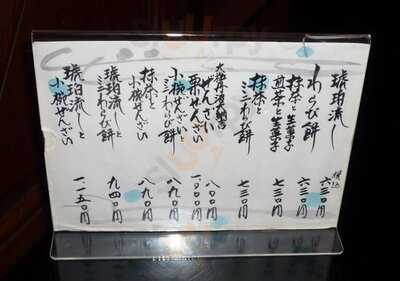 琥珀流し 六三〇円
税込
わらび餅 六三〇円
抹茶と生菓子
煎茶と生菓子 七三〇円
抹茶とミニわらび餅 七三〇円
ぜんざい 八〇〇円
栗ぜんざい 一〇〇〇円
小椀ぜんざいとミニわらび餅 八九〇円
抹茶と小椀ぜんざい 八九〇円
琥珀流しとミニわらび餅 九四〇円
琥珀流しと小椀ぜんざい 一一五〇円